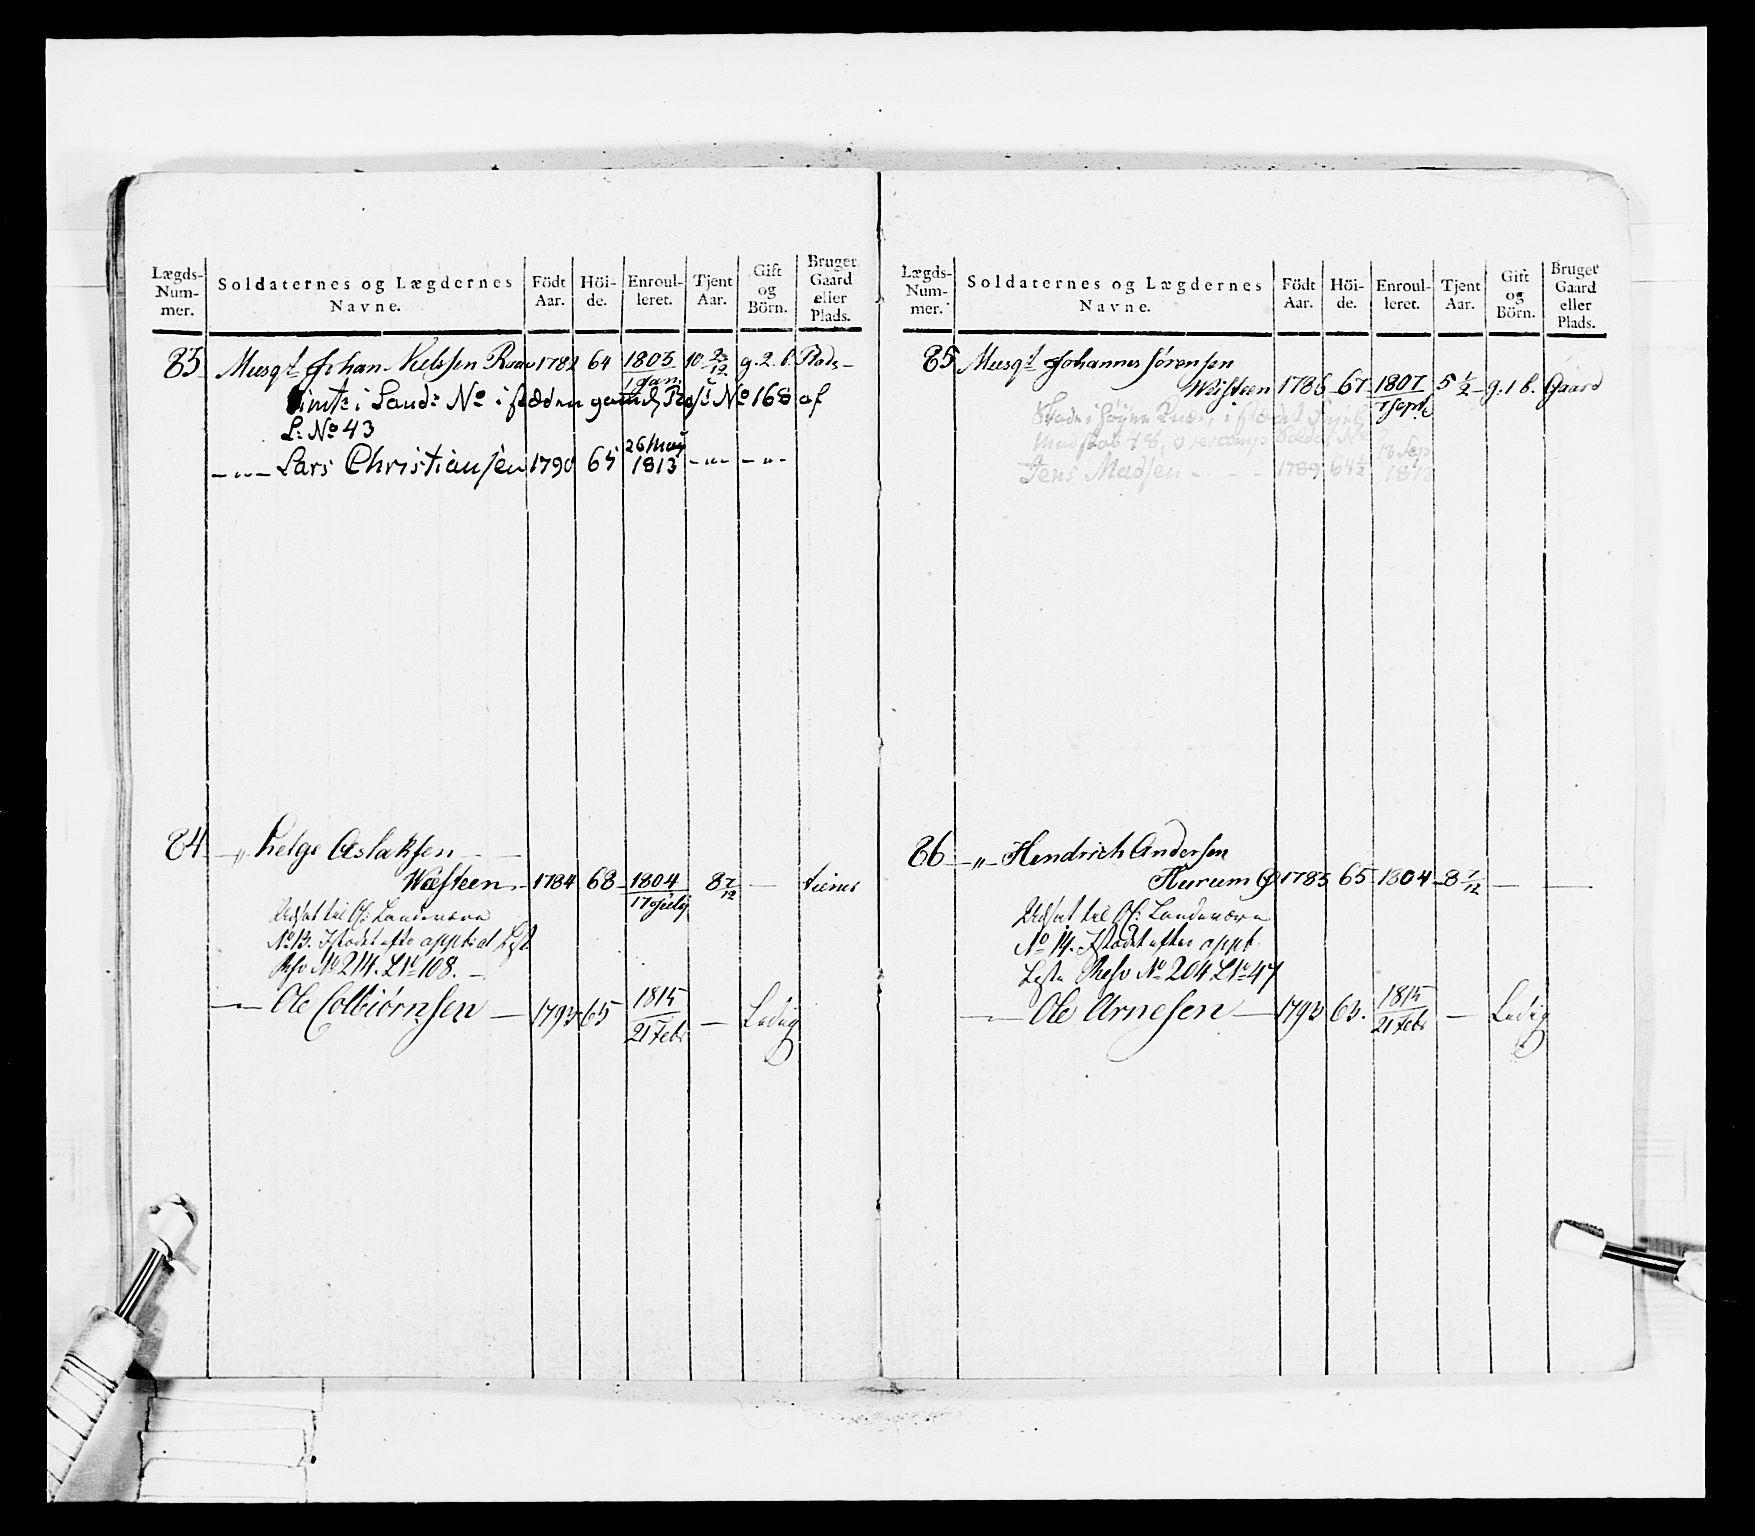 Lægds-Num-mer. Soldaternes og Lægdernes Navne. Födt Aar. Höi-de. Enroul-leret. Tjent Aar. Gift og Börn. Bruger Gaard eller Plads.
83 Musqt Johan Nelssen 1782 64 1803 1 Jan 10 g. 2. b. Plads
i Land: No i stæden gaml No 168 af
L: No 43
— „ — Lars Christiansen 1790 65 26 May 1813 — „ — — „ —
84 — „ Helge Aslaksen
Wæsteen 1784 68 1804 17 July 8 7/12 — tiener
Udsat til Landeværn
No 13. Istædet efter
No 214. L No 108.
— Ole Colbiørnsen — 1793 65 1815 21 Febr — Ledig
Lægds-Num-mer. Soldaternes og Lægdernes Navne. Födt Aar. Höi-de. Enroul-leret. Tjent Aar. Gift og Börn. Bruger Gaard eller Plads.
85 Musqt Johannes Sørensen
Wæsteen 1786 67 1807 1 Sept 5 1/2 g. 1 b. Gaard
i stædet
Jens Madsen - - - 1789 64 1/2
86 — „ — Hendrich Andersen
Hurum 1785 65 1804 8 7/12 — —
Udsat til Landeværn
No 14. Istædet efter
No 204 L No 47
— Ole Arnesen — 1793 63. 1815 21 Febr — Ledig